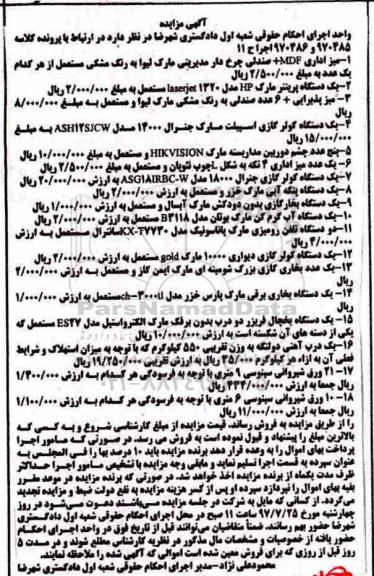 آگهی مزایده
واحد اجرای احکام حقوقی شعبه اول دادگستری شهرضا در نظر دارد در ارتباط با پرونده کلاسه
۹۷۰۴۸۵ و ۹۷۰۴۸۶ اجرا ح ۱۱
۱-میز اداری MDF+ صندلی چرخ دار مدیریتی مارک لیوا به رنگ مشکی مستعمل از هر کدام
یک عدد به مبلغ ۲/۵۰۰/۰۰۰ ریال
۲-یک دستگاه پرینتر مارک HP مدل laserjet ۱۳۲۰ مستعمل به مبلغ ۲/۰۰۰/۰۰۰ ریال
۳-میز پذیرایی + ۶ عدد صندلی به رنگ مشکی مارک لیوا و مستعمل به مبلغ ۸/۰۰۰/۰۰۰
ریال
۴-یک دستگاه کولر گازی اسپیلت مارک جنرال ۱۴۰۰۰ مدل ASH۱۴SJCW به مبلغ
۱۵/۰۰۰/۰۰۰ ریال
۵-پنج عدد چشم دوربین مداربسته مارک HIKVISION و مستعمل به مبلغ ۱۰/۰۰۰/۰۰۰ ریال
۶-یک عدد میز اداری ۴ تکه به شکل L چوب نئوپان و مستعمل به مبلغ ۲/۵۰۰/۰۰۰ ریال
۷-یک دستگاه کولر گازی جنرال ۱۸۰۰۰ مدل ASG۱۸IRBC-W به ارزش ۲۰/۰۰۰/۰۰۰ ریال
۸-یک دستگاه پنکه آبی مارک خزر و مستعمل به ارزش ۲/۰۰۰/۰۰۰ ریال
۹-یک دستگاه بخارگازی بدون دودکش مارک آبسال و مستعمل به ارزش ۱/۰۰۰/۰۰۰ ریال
۱۰-یک دستگاه آب گرم کن مارک بوتان مدل B۳۱۱۸ مستعمل به ارزش ۲/۰۰۰/۰۰۰ ریال
۱۱-دو دستگاه تلفن رومیزی مارک پاناسونیک مدل KX-T۷۷۳۰ سانترال مستعمل به ارزش
۴/۰۰۰/۰۰۰ ریال
۱۲-یک دستگاه کولر گازی دیواری ۱۰۰۰۰ مارک gold مستعمل به ارزش ۲/۰۰۰/۰۰۰ ریال
۱۳-یک عدد بخاری گازی بزرگ شومینه ای مارک ایمن گاز و مستعمل به ارزش ۲/۰۰۰/۰۰۰
ریال
۱۴- یک دستگاه بخاری برقی مارک پارس خزر مدل ch-۳۰۰۰tl مستعمل به ارزش ۱/۰۰۰/۰۰۰
ریال
۱۵-یک دستگاه یخچال فریزر دو درب بدون برفک مارک الکترواستیل مدل ES۲۷ مستعمل که
یکی از دسته های آن شکسته است به ارزش ۱۰/۰۰۰/۰۰۰ ریال
۱۶-یک درب آهنی دولنگه به وزن تقریبی ۵۵۰ کیلوگرم که با توجه به میزان استهلاک و شرایط
فعلی آن به ازاء هر کیلوگرم ۳۵/۰۰۰ ریال به ارزش تقریبی ۱۹/۲۵۰/۰۰۰ ریال
۱۷-۲۱ ورق شیروانی سینوسی ۹ متری با توجه به فرسودگی هر کدام به ارزش ۱/۴۰۰/۰۰۰
ریال جمعا به ارزش ریال
۱۸-۱۰ ورق شیروانی سینوسی ۶ متری با توجه به فرسودگی هر کدام به ارزش ۱/۱۰۰/۰۰۰
ریال جمعا به ارزش ۱۱/۰۰۰/۰۰۰ ریال
را از طریق مزایده به فروش رساند. قیمت مزایده از مبلغ کارشناسی شروع و به کسی که
بالاترین مبلغ را پیشنهاد و قبول نموده است به فروش می رسد. در صورتی که مامور اجرا
پرداخت بهای اموال را به وعده قرار دهد برنده مزایده باید ۱۰ درصد بها را فی المجلس به
عنوان سپرده به قسمت اجرا تسلیم نماید و مابقی وجه مزایده با تشخیص مامور اجرا حداکثر
ظرف مدت یکماه از برنده مزایده اخذ خواهد شد. در صورتی که برنده مزایده در موعد مقرر
بقیه بهای اموال را نپردازد سپرده او پس از کسر هزینه مزایده به نفع دولت ضبط و مزایده تجدید
می گردد. از کسانی که مایل به شرکت در جلسه مزایده می‌باشند دعوت می‌شود در روز
چهارشنبه مورخ ۹۷/۷/۲۵ ساعت ۱۱ صبح در محل اجرای احکام حقوقی شعبه اول دادگستری
شهرضا حضور بهم رسانند. ضمنا متقاضیان می‌توانند قبل از تاریخ فوق در واحد اجرای احکام
حضور یافته از خصوصیات و مشخصات مال مذکور در نظریه کارشناس مطلع شوند و در مدت ۵
روز قبل از روزی که برای فروش معین شده است اموالی که آگهی شده را ملاحظه نمایند.
محمودعلی نژاد-مدیر اجرای احکام حقوقی شعبه اول دادگستری شهرضا